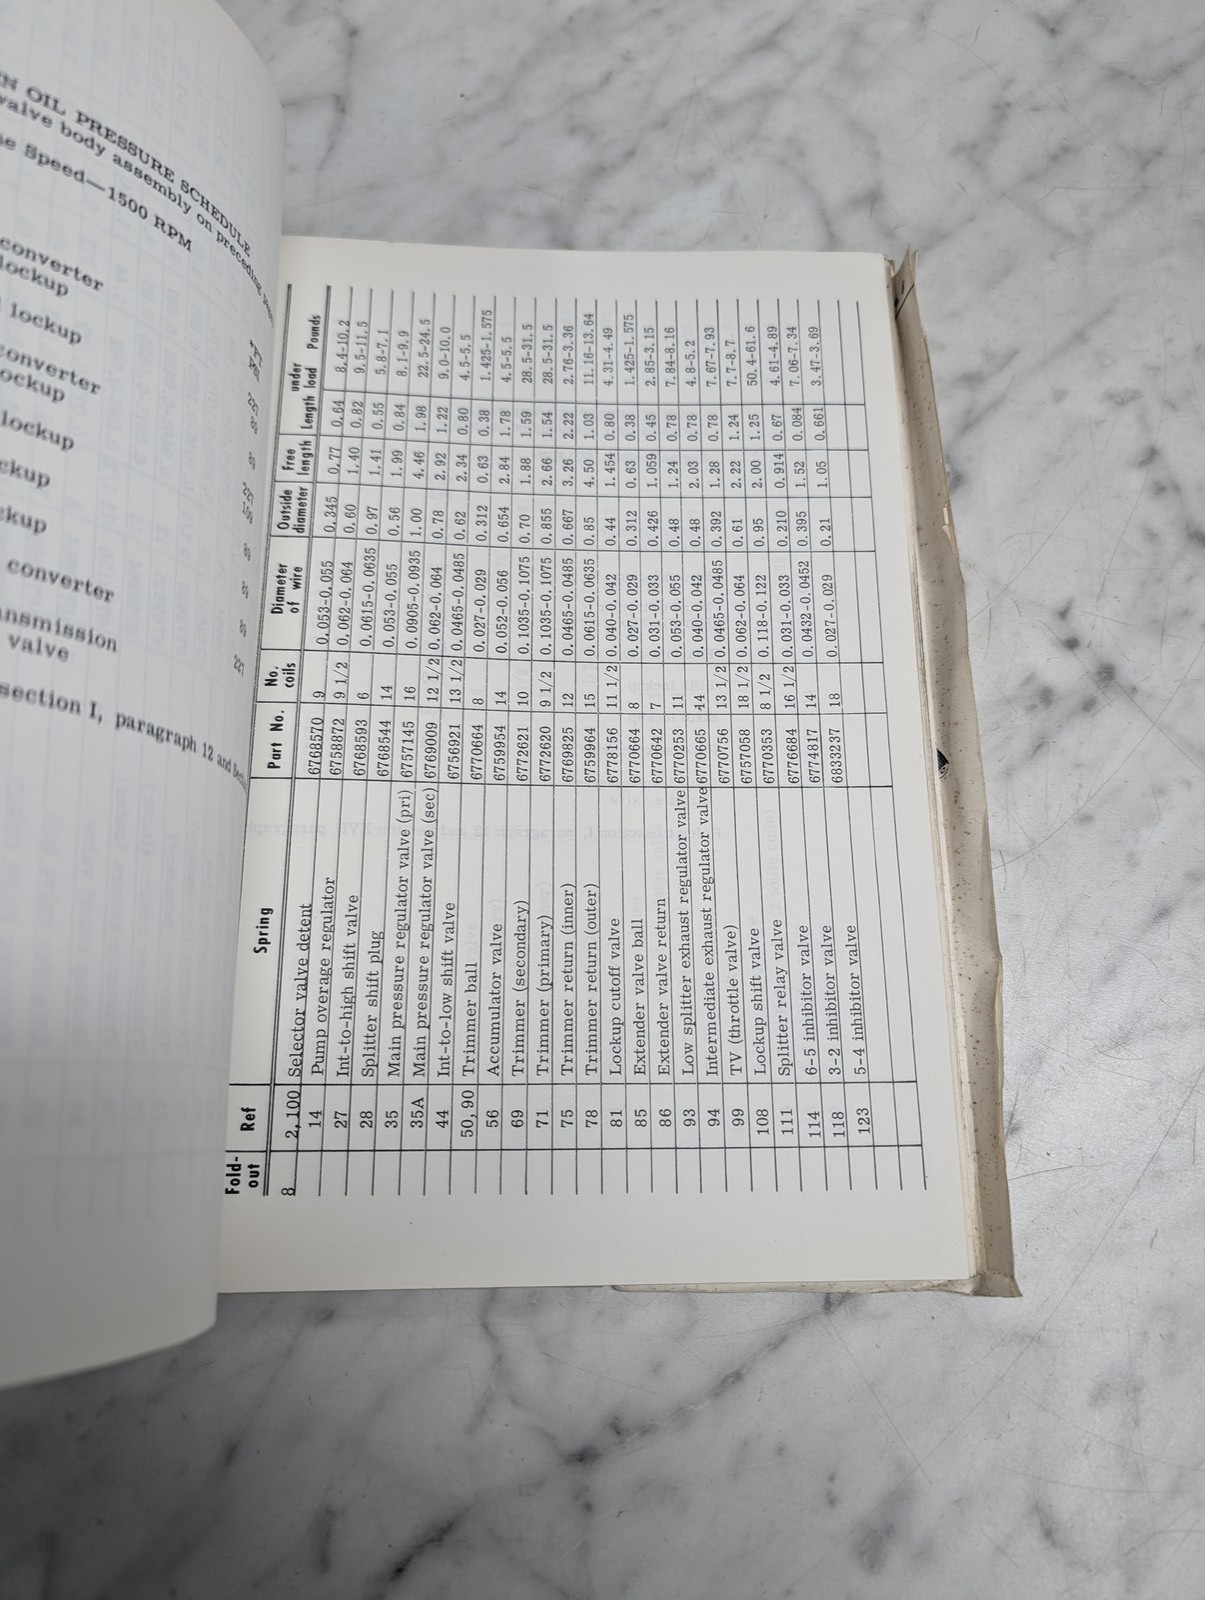 N OIL PRESSURE SCHEDULE
valve body assembly on preceding
Speed—1500 RPM
converter
lockup
lockup
converter
lockup
lockup
converter
valve
section I, paragraph 12 and
Fold-out Ref Spring Part No. No. coils Diameter of wire Outside diameter Free length Length under load Pounds
8 2,100 Selector valve detent 6768570 9 0.053-0.055 0.345 0.77 0.64 8.4-10.2
14 Pump overage regulator 6758872 9 1/2 0.062-0.064 0.60 1.40 0.82 9.5-11.5
27 Int-to-high shift valve 6768593 6 0.0615-0.0635 0.97 1.41 0.55 5.8-7.1
28 Splitter shift plug 6768544 14 0.053-0.055 0.56 1.99 0.84 8.1-9.9
35 Main pressure regulator valve (pri) 6757145 16 0.0905-0.0935 1.00 4.46 1.98 22.5-24.5
35A Main pressure regulator valve (sec) 6769009 12 1/2 0.062-0.064 0.78 2.92 1.22 9.0-10.0
44 Int-to-low shift valve 6756921 13 1/2 0.0465-0.0485 0.62 2.34 0.80 4.5-5.5
50, 90 Trimmer ball 6770664 8 0.027-0.029 0.312 0.63 0.38 1.425-1.575
56 Accumulator valve 6759954 14 0.052-0.056 0.654 2.84 1.78 4.5-5.5
69 Trimmer (secondary) 6772621 10 0.1035-0.1075 0.70 1.88 1.59 28.5-31.5
71 Trimmer (primary) 6772620 9 1/2 0.1035-0.1075 0.855 2.66 1.54 28.5-31.5
75 Trimmer return (inner) 6769825 12 0.0465-0.0485 0.667 3.26 2.22 2.76-3.36
78 Trimmer return (outer) 6759964 15 0.0615-0.0635 0.85 4.50 1.03 11.16-13.64
81 Lockup cutoff valve 6778156 11 1/2 0.040-0.042 0.44 1.454 0.80 4.31-4.49
85 Extender valve ball 6770664 8 0.027-0.029 0.312 0.63 0.38 1.425-1.575
86 Extender valve return 6770642 7 0.031-0.033 0.426 1.059 0.45 2.85-3.15
93 Low splitter exhaust regulator valve 6770253 11 0.053-0.055 0.48 1.24 0.78 7.84-8.16
94 Intermediate exhaust regulator valve 6770665 14 0.040-0.042 0.48 2.03 0.78 4.8-5.2
99 TV (throttle valve) 6770756 13 1/2 0.0465-0.0485 0.392 1.28 0.78 7.67-7.93
108 Lockup shift valve 6757058 18 1/2 0.062-0.064 0.61 2.22 1.24 7.7-8.7
111 Splitter relay valve 6770353 8 1/2 0.118-0.122 0.95 2.00 1.25 50.4-61.6
114 6-5 inhibitor valve 6776684 16 1/2 0.031-0.033 0.210 0.914 0.67 4.61-4.89
118 3-2 inhibitor valve 6774817 14 0.0432-0.0452 0.395 1.52 0.084 7.06-7.34
123 5-4 inhibitor valve 6833237 18 0.027-0.029 0.21 1.05 0.661 3.47-3.69